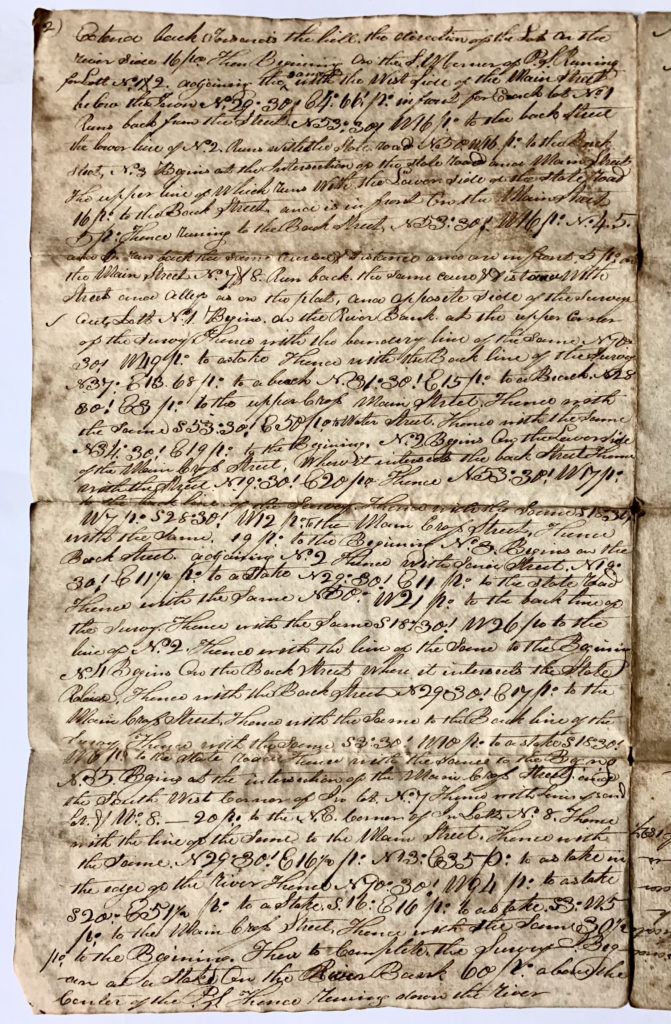 2) Extend back Towards the hill, the direction of the Lots on the
river side 16 po. Then Begining On the S.W Corner of P.S. Runing
for Lott No. 1 & 2. adjoining the same with the West Side of the Main Street
below the Town N29°30' E 4. 66' po. in front for Each lot No. 1
Runs back from the Street N53°30' W16 po. to the back Street
the lower line of No. 2. Runs with the State road N50 W16 po. to the Back
Street, No. 3 Begins at the Intersection of the State road and Main Street
The upper line of Which runs With the Lower Side of the State road
16 po. to the Back Street, and is in front On the Main Street
5 po. Thence runing to the Back Street, N53°30' W16 po. No. 4. 5.
and 6. ran back the Same Course & Distance and are in front 5 po. on
the Main Street No. 7 & 8. Run back the Same course & Distance With
Street and Alleys as on the plat, and opposite Side of the Survey
Out Lott No. 1 Begins. on the River Bank at the upper corner
of the Survey Thence with the boundery line of the Same N70°
30' W49 po. to a stake Thence with the Back line of the Survey
N37° E13.68 po. to a beech N31°30' E15 po. to a Beech N28
30' E3 po. to the upper Cross Main Street, Thence with
the Same S53°30' E50 po to Water Street, Thence with the Same
N34°30' E19 po. to the Begining. No. 2 Begins On the Lower Side
of the Main Cross Street, Where it intersects the back Street Thence
with the Street N19°30' E20 po Thence N53°30' W17 po.
to the back line of the Survey Thence with the Same S18°30'
W7 po. S28°30' W12 po. to the Main Cross Street, Thence
with the Same. 19 po. to the Beginning No. 3. Begins on the
Back Street. adjoining No. 2 Thence with Said Street N19°
30' E11½ po. to a stake N29°30' E11 po. to the State road
Thence with the Same N50° W21 po. to the back line of
the Survey Thence with the Same S18°30' W26 po to the
line of No. 2. Thence with the line of the Same to the Begining
No. 4 Begins On the Back Street where it intersects the State
Road, Thence with the Back Street N29°30' E17 po. to the
Main Cross Street, Thence with the Same to the Back line of the
Survey Thence with the Same S3°30' W10 po. to a stake S18°30'
W6 po. to the State road Thence with the Same to the Begins
No. 5 Begins at the intersection of the Main Cross Street and
the South West Corner of In lot No. 7 Thence with line of said
lot & No. 8. — 20 po. to the N.E. Corner of In Lott No. 8. Thence
with the line of the Same to the Main Street, Thence with
the Same. N29°30' E16½ po. N13° E35 po. to a stake in
the edge of the River Thence N70°30' W24 po. to a stake
S20° E51½ po. to a stake. S16° E16 po. to a stake S3° W5
po. to the Main Cross Street, Thence with the Same 30½
po. to the Begining. Then to Complete the Survey I Beg-
an at a Stake On the River Bank 60 po. above the
Center of the P.S. Thence runing down the river